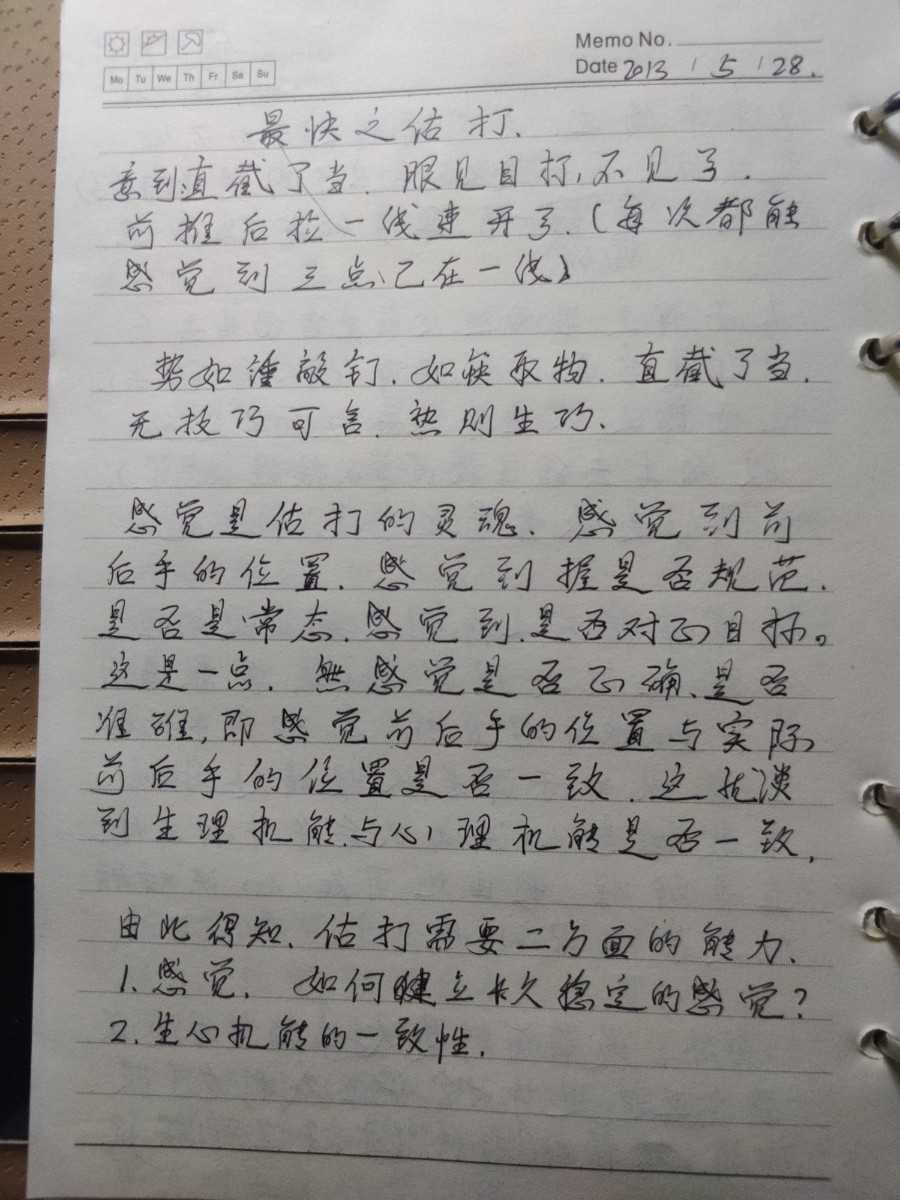 Memo No.
Mo Tu We Th Fr Sa Su
Date 2013 / 5 / 28.
最快之估打、
意到直截了当. 眼见目打,不见了.
前推后拉一线连开了.(每次都能
感觉到三点已在一线)
势如锤敲钉. 如筷取物. 直截了当.
无技巧可言. 熟则生巧.
感觉是估打的灵魂. 感觉到前
后手的位置. 感觉到握是否规范.
是否是常态. 感觉到.是否对正目标。
这是一点. 然感觉是否正确、是否
准确,即感觉前后手的位置与实际
前后手的位置是否一致. 这就谈
到生理机能.与心理机能是否一致.
由此得知. 估打需要二方面的能力.
1. 感觉. 如何建立长久稳定的感觉?
2. 生心机能的一致性.